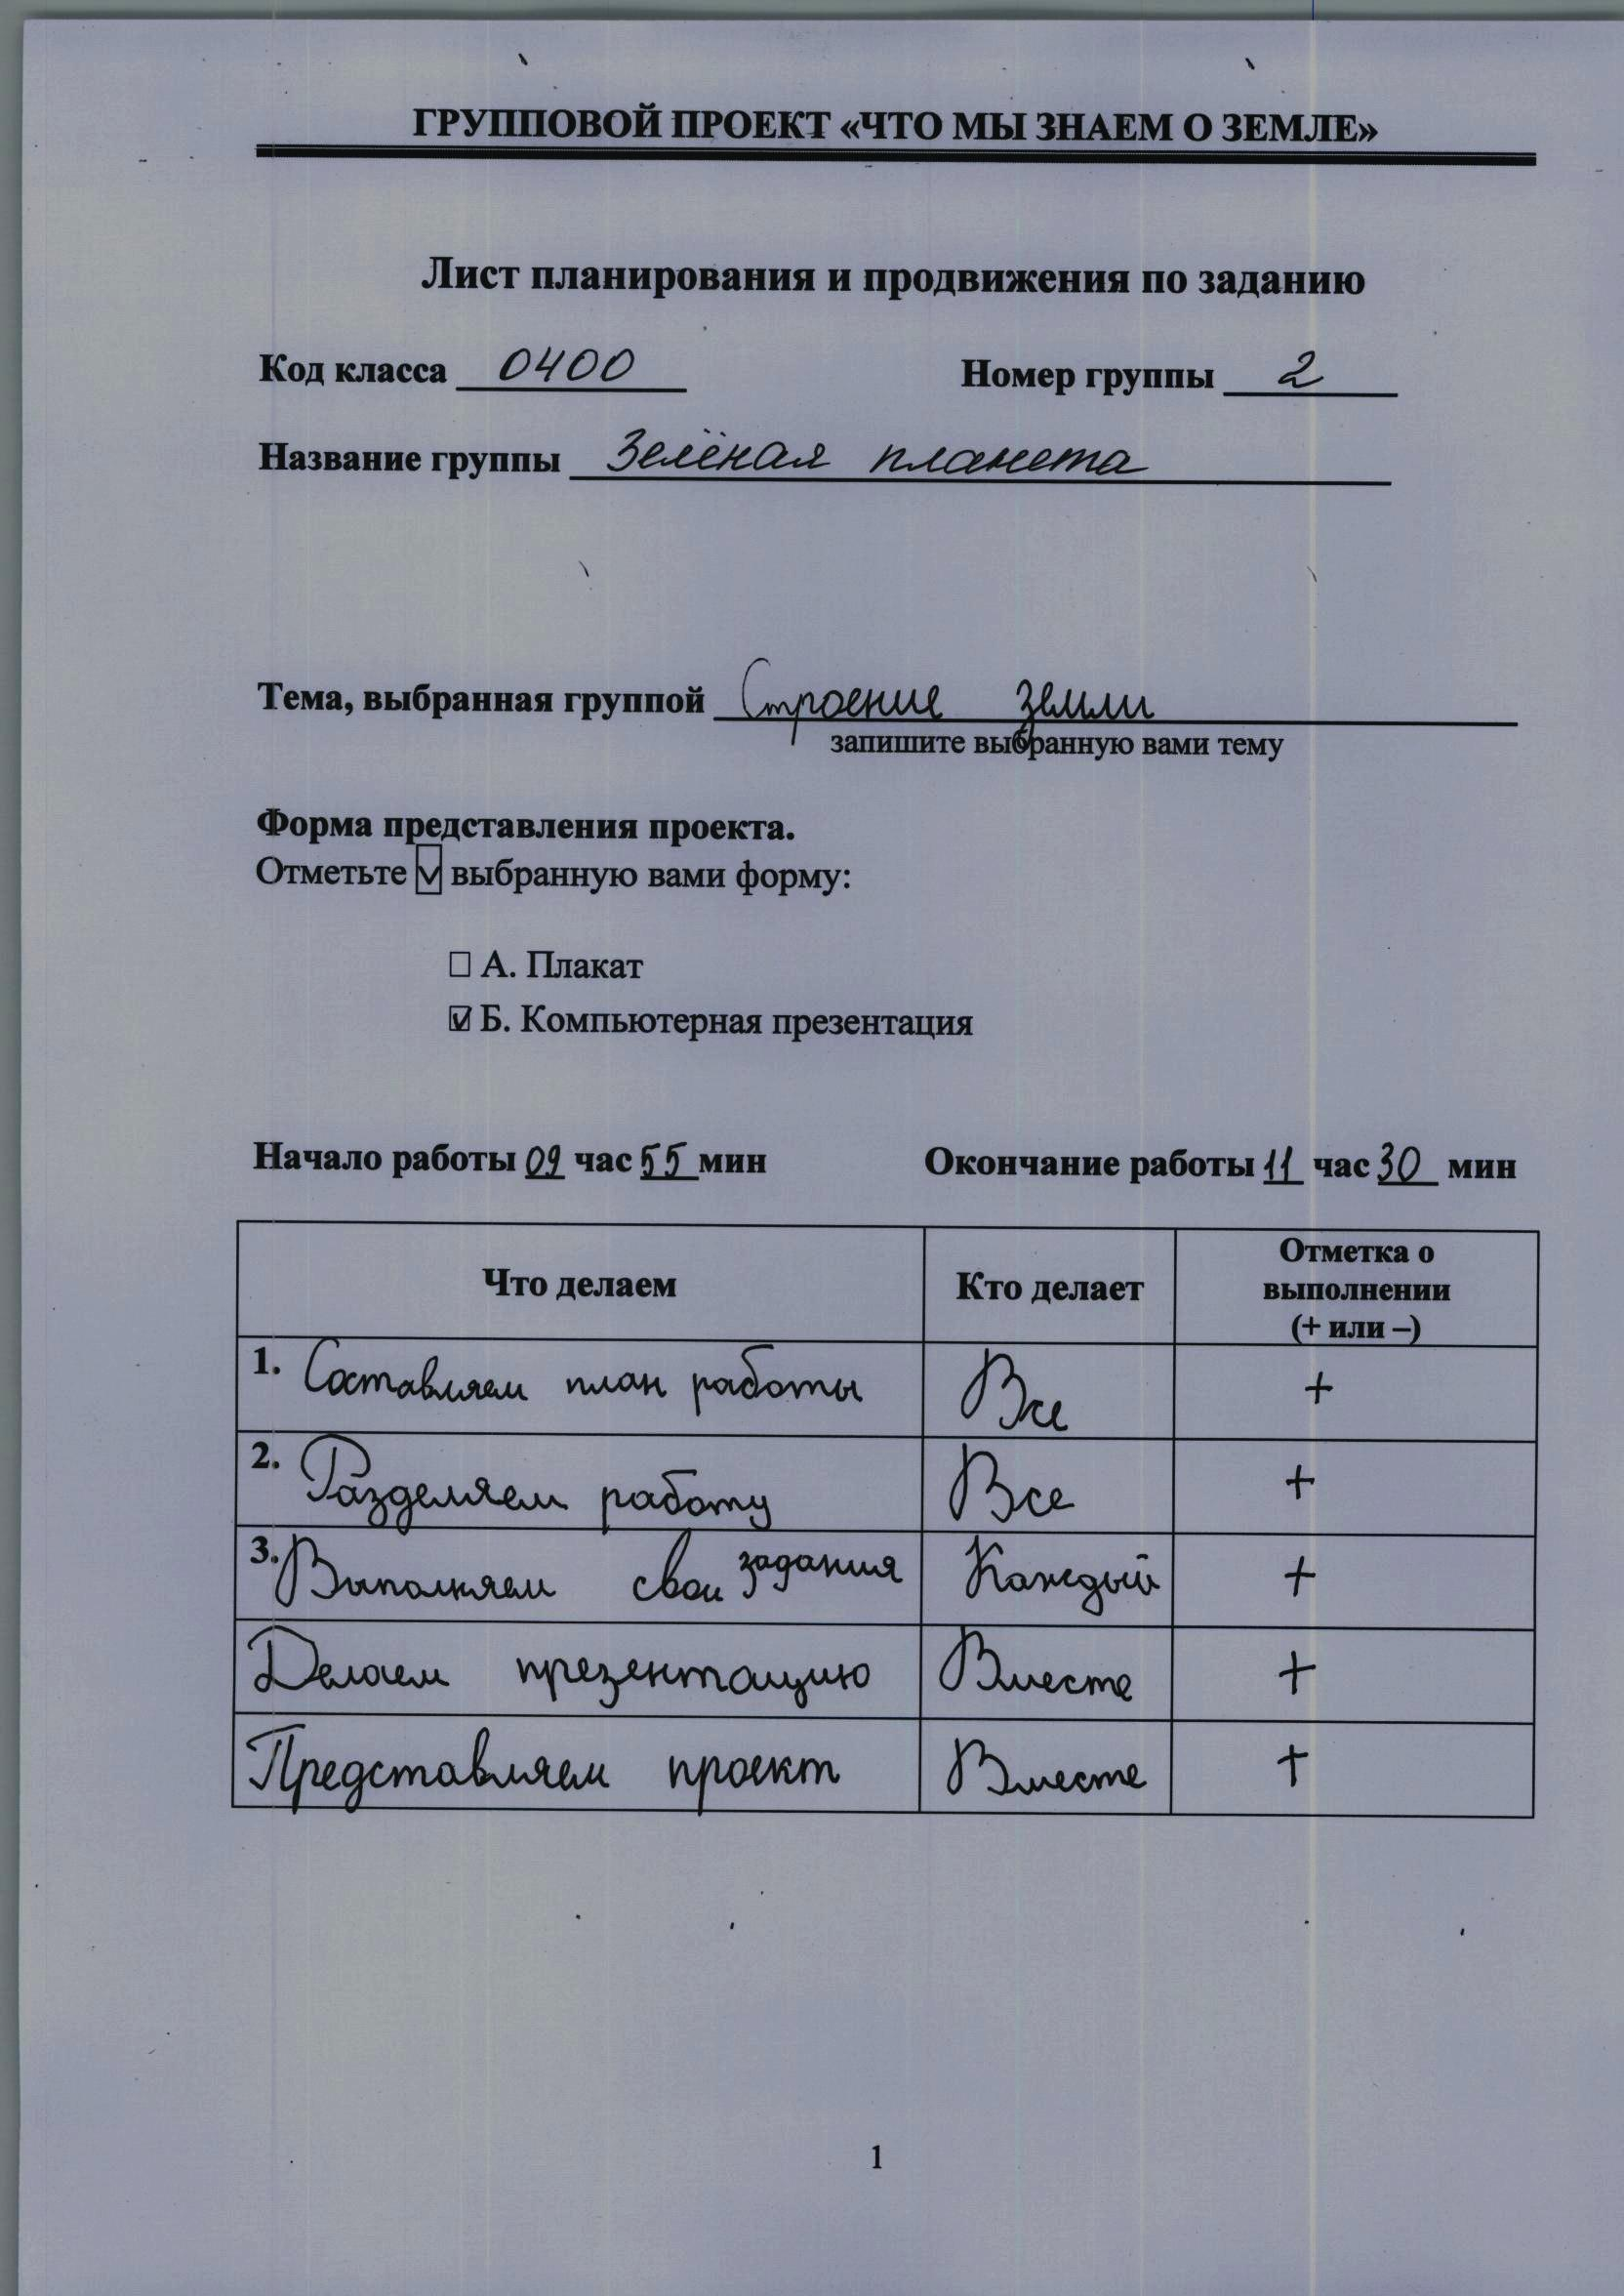 ГРУППОВОЙ ПРОЕКТ «ЧТО МЫ ЗНАЕМ О ЗЕМЛЕ»
Лист планирования и продвижения по заданию
Код класса 0400 Номер группы 2
Название группы Зелёная планета
Тема, выбранная группой Строение земли
запишите выбранную вами тему
Форма представления проекта.
Отметьте ☑ выбранную вами форму:
☐ А. Плакат
☑ Б. Компьютерная презентация
Начало работы 09 час 55 мин Окончание работы 11 час 30 мин
Что делаем Кто делает Отметка о выполнении (+ или –)
1. Составляем план работы Все +
2. Разделяем работу Все +
3. Выполняем свои задания Каждый +
Делаем презентацию Вместе +
Представляем проект Вместе +
1